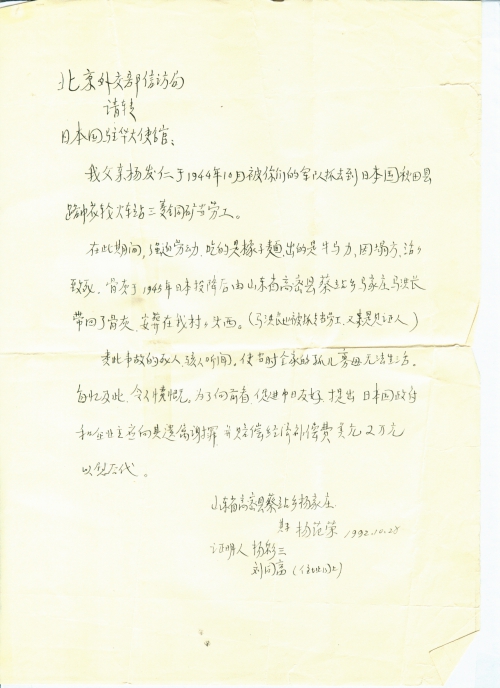 北京外交部信访局
请转
日本国驻华大使馆:
我父亲杨发仁于1944年10月被你们的军队抓去到日本国秋田县
花岗 火车站三菱铜矿当劳工。
在此期间,强迫劳动,吃的是橡子麵,出的是牛马力,因塌方,活
致死,骨灰于1945年日本投降后由山东省高密县蔡站乡马家庄马洪长
带回了骨灰,安葬在我村头西。(马洪长也被抓去劳工,又是见证人)
类此事故的 人骇人听闻,使当时全家的孤儿寡母无法生活。
每忆及此,令人愤慨,为了向前看,促进中日友好,提出日本国政府
和企业主应向其遗属谢罪并赔偿经济补偿费美元2万元
以 后代。
山东省高密县蔡站乡杨家庄
其子 杨范荣 1992.10.28
证明人 杨彩三
刘同富(住址同上)